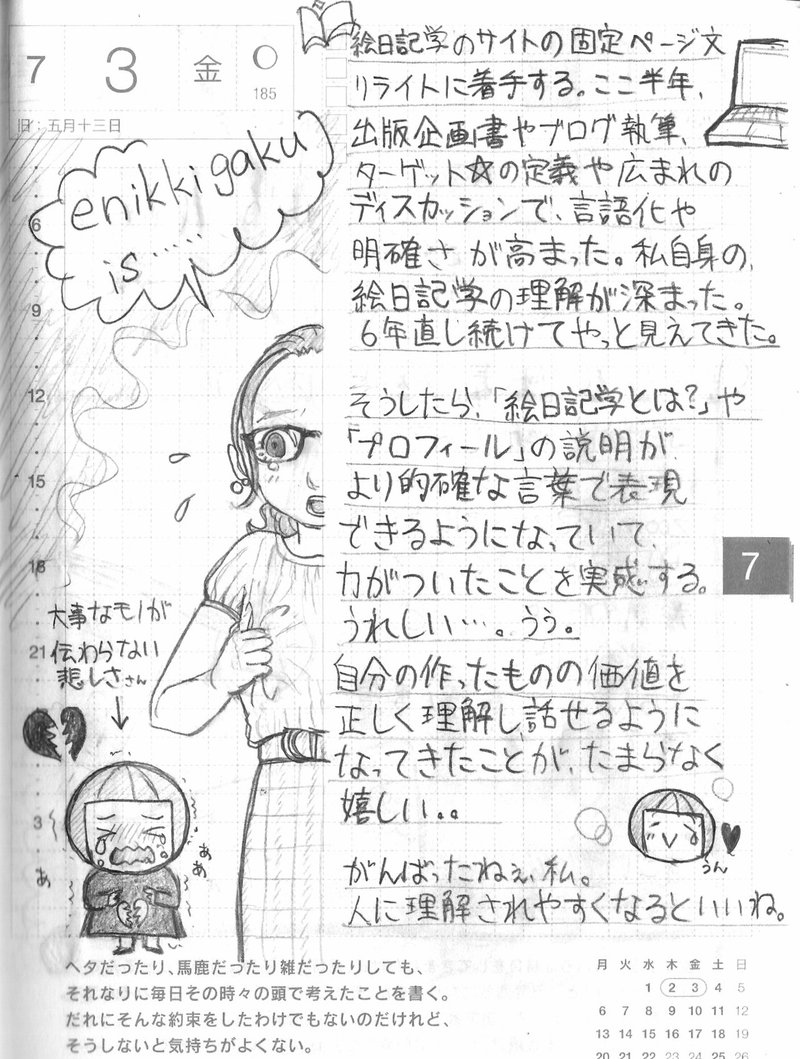 7 3 金
185
旧:五月十三日
enikkigaku
is......
絵日記学のサイトの固定ページ文
リライトに着手する。ここ半年、
出版企画書やブログ執筆、
ターゲット☆の定義や広まれの
ディスカッションで、言語化や
明確さが高まった。私自身の、
絵日記学の理解が深まった。
6年直し続けてやっと見えてきた。
そうしたら、「絵日記学とは?」や
「プロフィール」の説明が
より的確な言葉で表現
できるようになっていて、
力がついたことを実感する。
うれしい…。うぅ。
自分の作ったものの価値を
正しく理解し、話せるように
なってきたことが、たまらなく
嬉しい。。
がんばったねぇ、私。
人に理解されやすくなるといいね。
6
9
12
15
18
21
3
7
大事なモノが
伝わらない
悲しささん
↓
あ
あぁ
うん
ヘタだったり、馬鹿だったり雑だったりしても、
それなりに毎日その時々の頭で考えたことを書く。
だれにそんな約束をしたわけでもないのだけれど、
そうしないと気持ちがよくない。
月 火 水 木 金 土 日
1 2 3 4 5
6 7 8 9 10 11 12
13 14 15 16 17 18 19
20 21 22 23 24 25 26